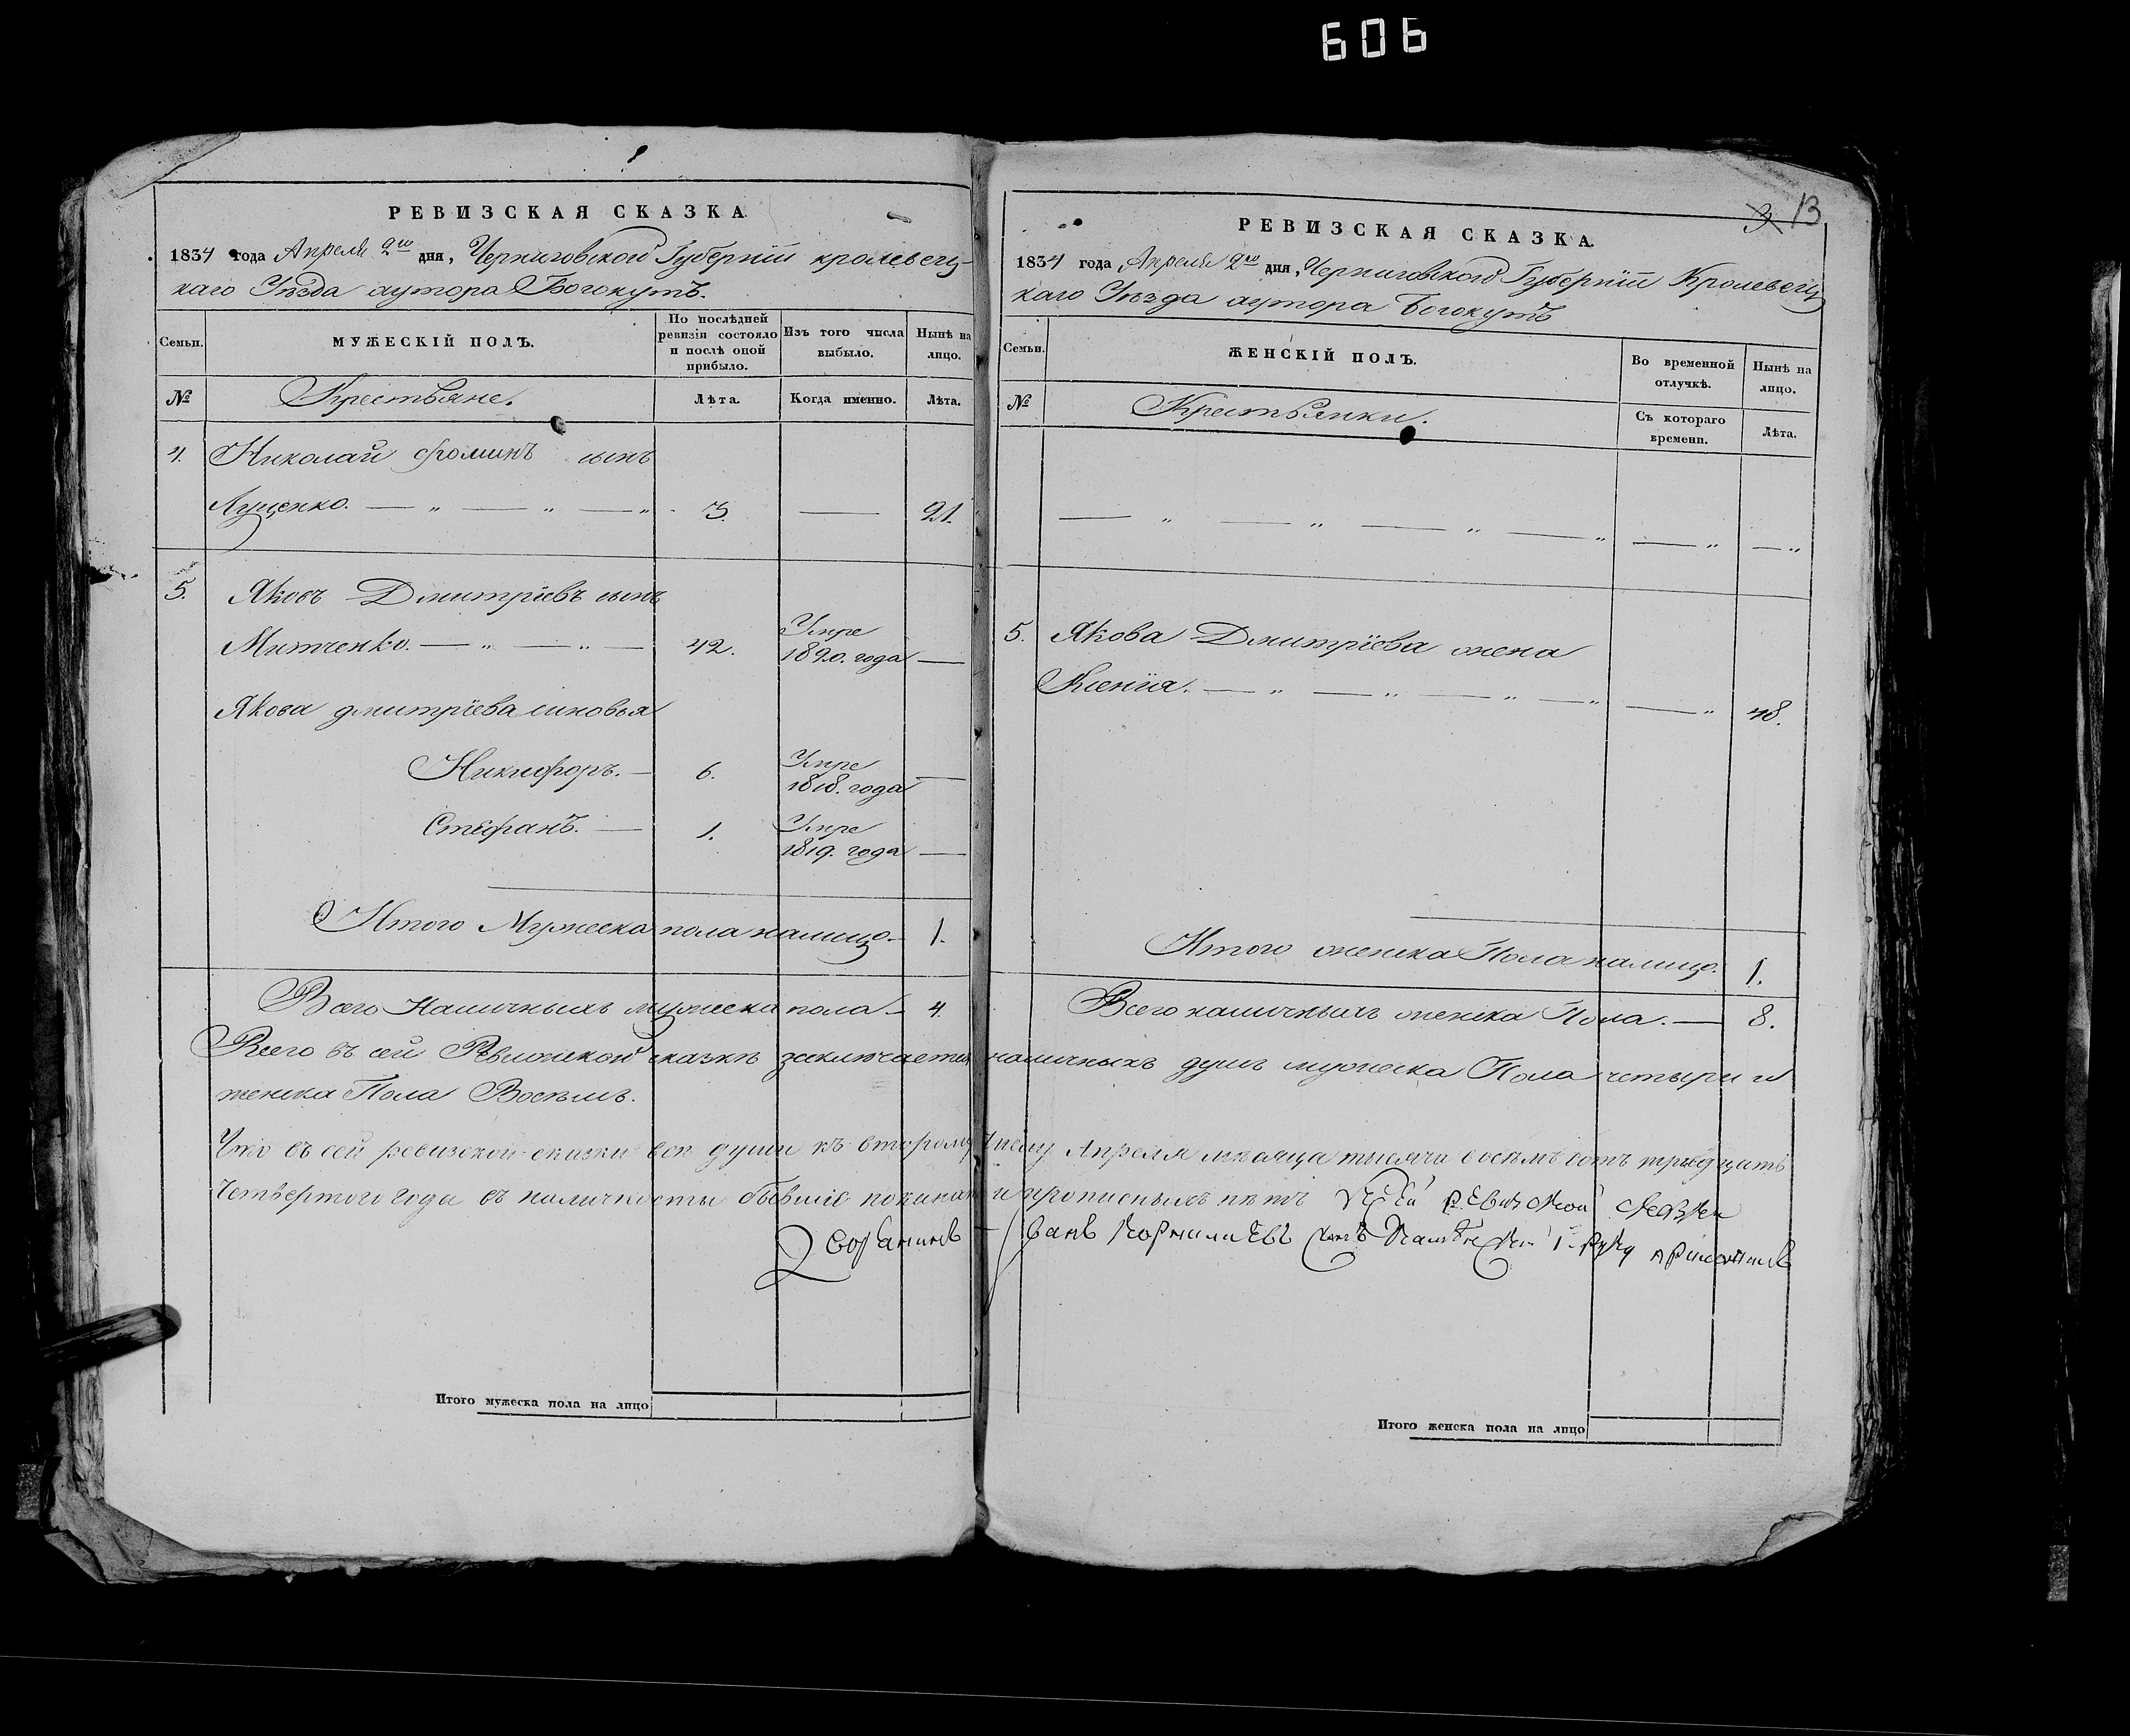 606
РЕВИЗСКАЯ СКАЗКА
1834 года Апреля 2го дня, Черниговской Губерніи кролевец-
каго Уѣзда хутора Богокутъ.
Семьи.
МУЖЕСКІЙ ПОЛЪ.
По послѣдней
ревизіи состояло
и послѣ оной
прибыло.
Изъ того числа
выбыло.
Нынѣ на
лицо.
№
Крестьяне.
Лѣта.
Когда именно.
Лѣта.
4. Николай Фоминъ сынъ
Луценко. — „ — „ — „ 3. — 21.
5. Яковъ Дмитріевъ сынъ
Митченко. — „ — „ — 42. Умре 1820. года —
Якова дмитріева синовья
Никифоръ. — 6. Умре 1818. года —
Стефанъ. — 1. Умре 1819. года —
Итого Мужеска пола налицо. 1.
Всего Наличныхъ мужеска пола — 4.
РЕВИЗСКАЯ СКАЗКА.
3 13
1834 года Апреля 2го дня, Черниговской Губерніи Кролевец
каго Уѣзда хутора Богокутъ
Семьи.
ЖЕНСКІЙ ПОЛЪ.
Во временной
отлучкѣ.
Нынѣ на
лицо.
№
Крестьянки.
Съ котораго
времени.
Лѣта.
— „ — „ — „ — „ — „ — „
5. Якова Дмитріева жена
Ксенія. — „ — „ — „ — „ — „ 48.
Итого женска Пола налицо. 1.
Всего наличныхъ женска Пола. — 8.
Всего въ сей Ревижской сказкѣ заключается наличныхъ душъ мужеска Пола четыри и
женска Пола Восѣмъ.
Что въ сей ревизской сказки всѣ души къ второму числу Апреля мѣсяца тысяча восѣмъ сотъ тридцать
Четвертого года въ наличности бывшіе показаны и прописныхъ нѣтъ ксей Ревижской сказки
Дворанинъ Иванъ Корнилиевъ сынъ руку приложилъ
Итого мужеска пола на лицо
Итого женска пола на лицо